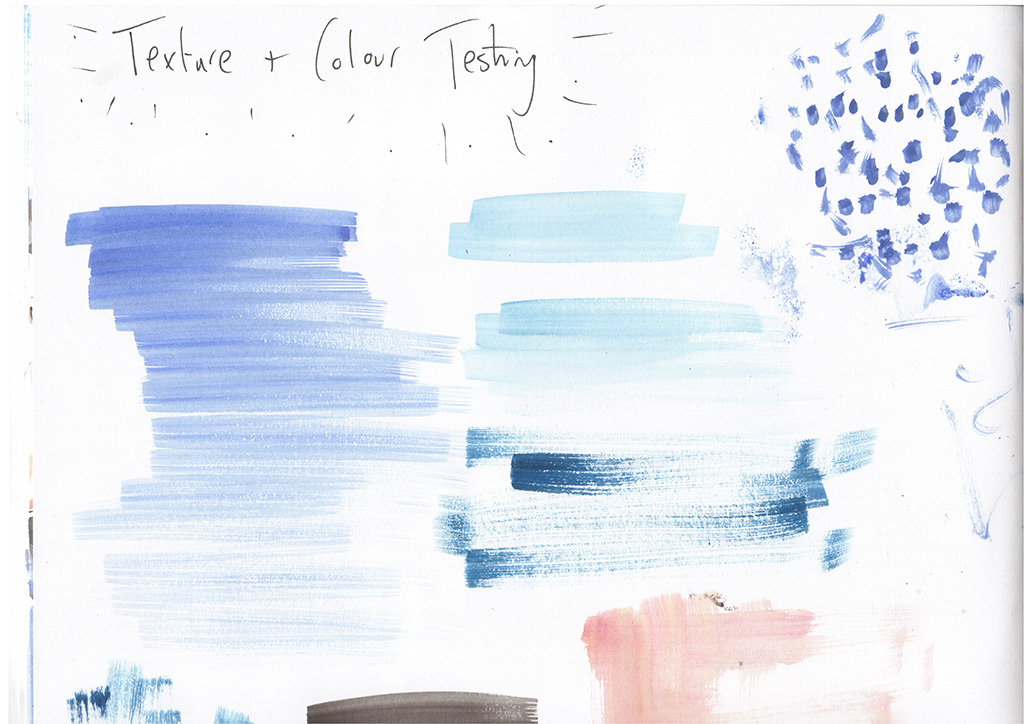 Texture + Colour Testing